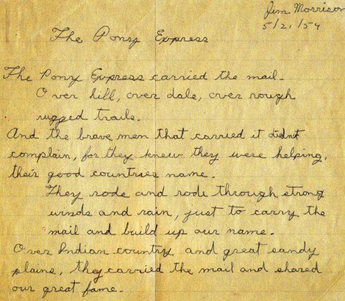 Jim Morrison
5/21/54
The Pony Express
The Pony Express carried the mail.
Over hill, over dale, over rough
rugged trails.
And the brave men that carried it didnt
complain, for they knew they were helping,
their good countries name.
They rode and rode through strong
winds and rain, just to carry the
mail and build up our name.
Over Indian country and great sandy
plains, they carried the mail and shared
our great fame.